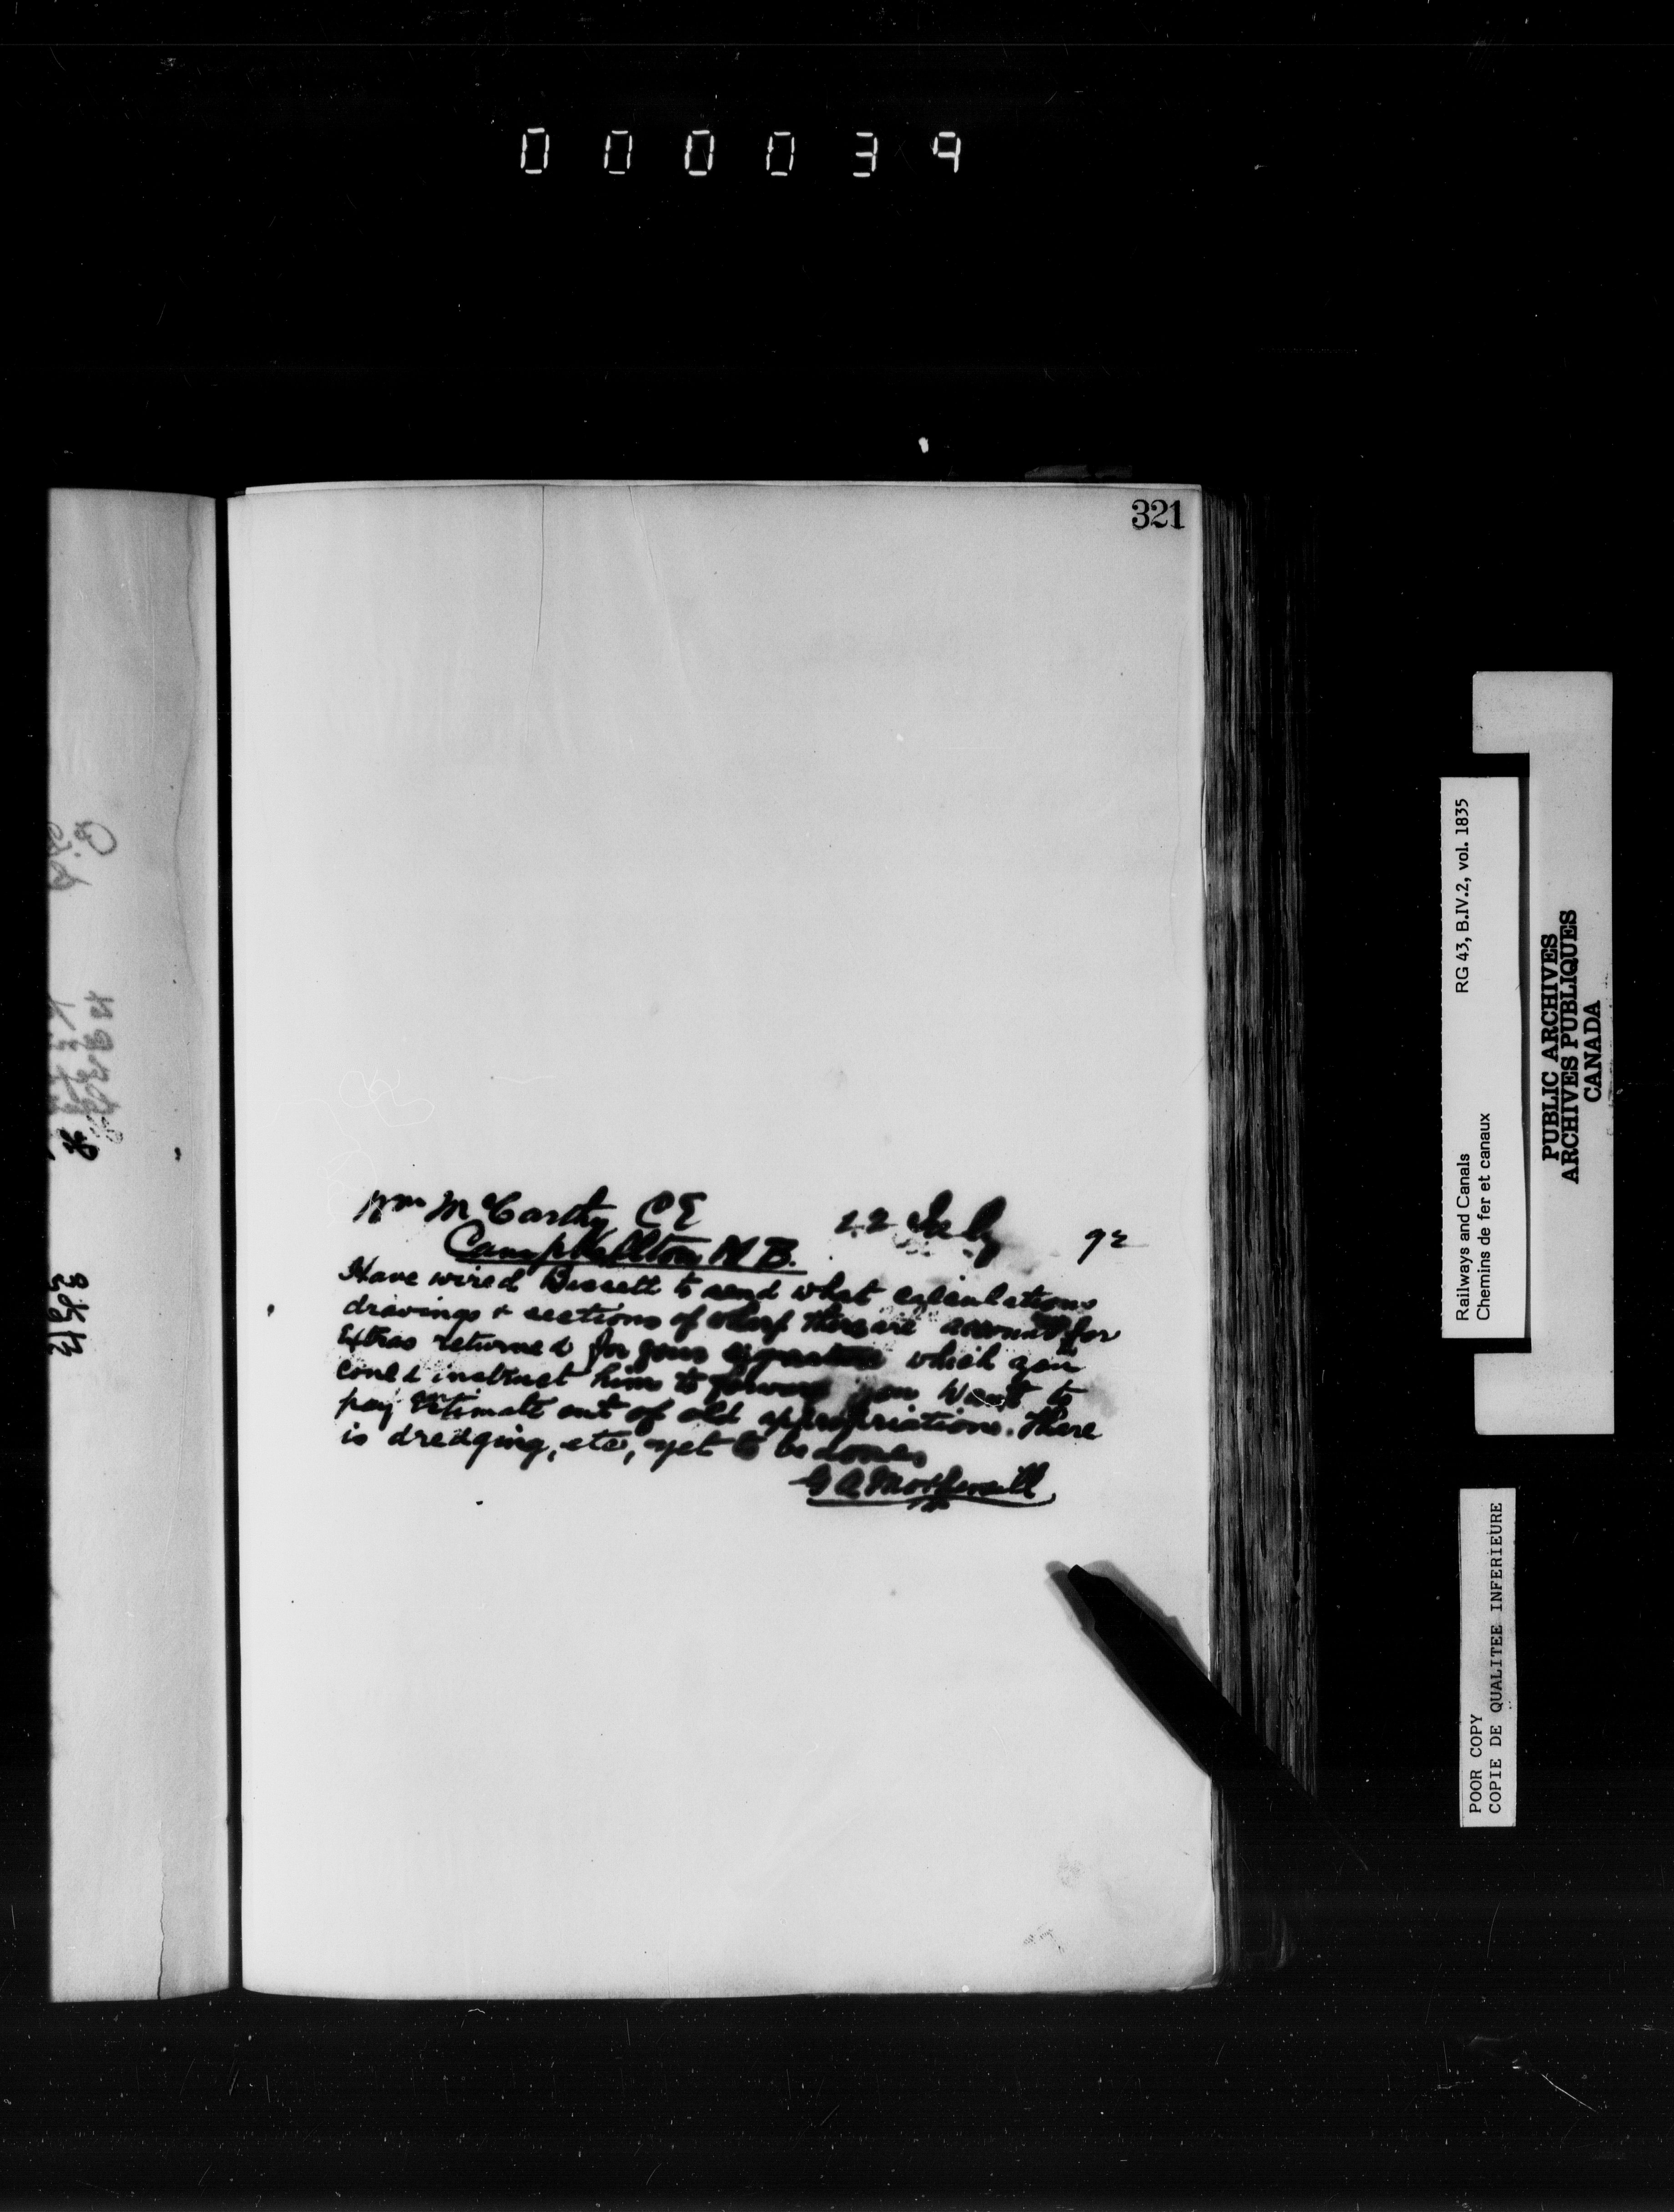 000039
321
Wm McCarthy CE 22 July 92
Campbellton N B.
Have wired Bissett to send what calculations
drawings & sections of wharf there are account for
Extras returned for your signature which you
could instruct him to forward you Want to
pay Estimate out of old appropriations. There
is dredging, etc, yet to be done
Railways and Canals RG 43, B.IV.2, vol. 1835
Chemins de fer et canaux
PUBLIC ARCHIVES
ARCHIVES PUBLIQUES
CANADA
POOR COPY
COPIE DE QUALITEE INFERIEURE